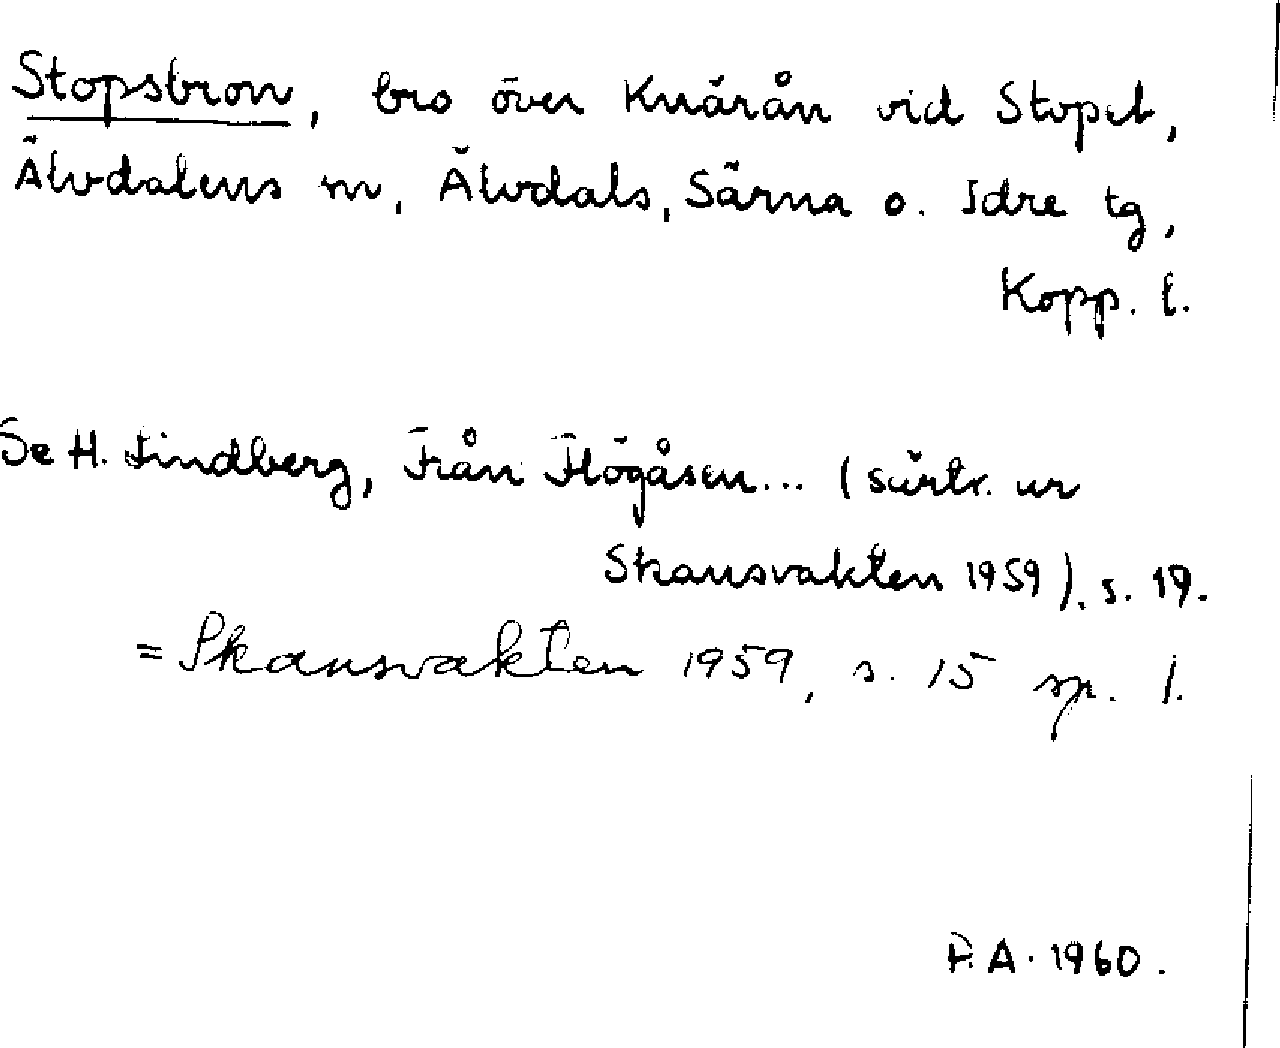 Stopsbron, bro över Knärån vid Stopet,
Älvdalens sn, Älvdals, Särna o. Idre tg,
Kopp. l.
Se H. Lindberg, Från Flögåsen... (särtr. ur
Skansvakten 1959), s. 19.
= Skansvakten 1959, s. 15 sp. 1.
P.A. 1960.